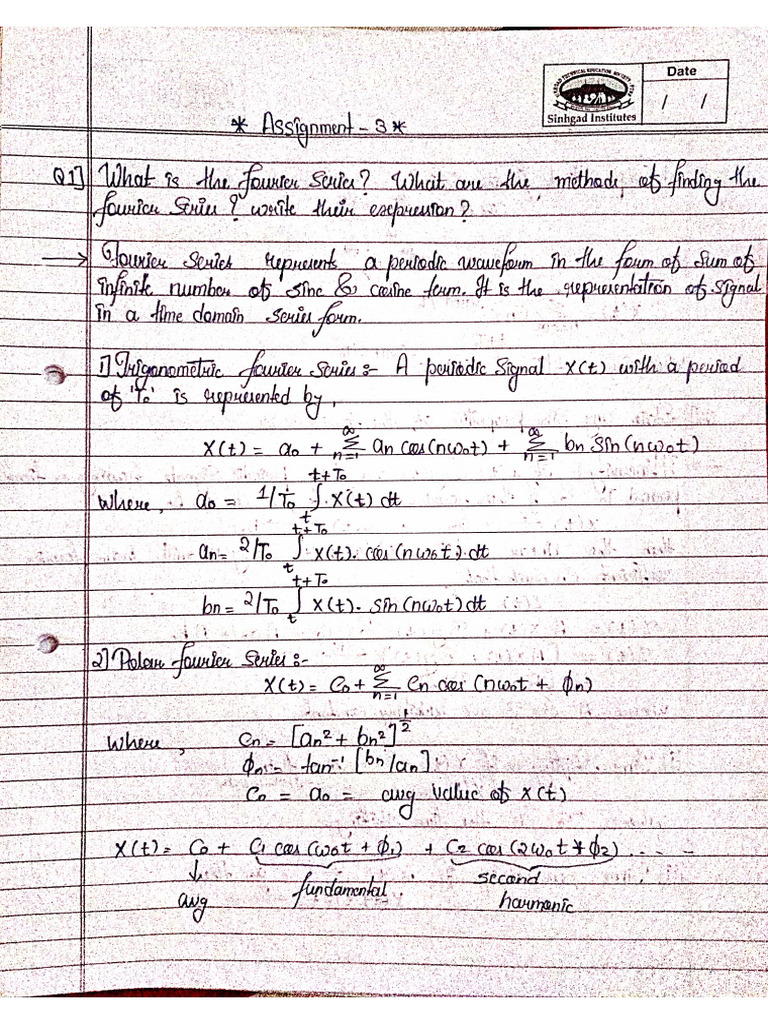 SINHGAD TECHNICAL EDUCATION SOCIETY
Sinhgad Institutes
Date
/ /
* Assignment - 3 *
Q1] What is the fourier series? What are the methods of finding the
fourier series? write their expression?
→ Fourier series represents a periodic waveform in the form of sum of
infinite number of sine & cosine term. It is the representation of signal
in a time domain series form.
1] Trigonometric fourier series:- A periodic signal x(t) with a period
of 'T₀' is represented by,
x(t) = a₀ + ∞Σn=1 an cos(nω₀t) + ∞Σn=1 bn sin(nω₀t)
where, a₀ = 1/T₀ ∫ₜᵗ⁺ᵀ⁰ x(t) dt
an = 2/T₀ ∫ₜᵗ⁺ᵀ⁰ x(t). cos(nω₀t).dt
bn = 2/T₀ ∫ₜᵗ⁺ᵀ⁰ x(t). sin(nω₀t) dt
2] Polar fourier series:-
x(t) = C₀ + ∞Σn=1 Cn cos(nω₀t + ϕn)
where, Cn = [an² + bn²]^1/2
ϕn = tan⁻¹ [bn/an]
C₀ = a₀ = avg value of x(t)
x(t) = C₀ + C₁ cos(ω₀t + ϕ₁) + C₂ cos(2ω₀t + ϕ₂) . - - -
↓ fundamental second
avg harmonic